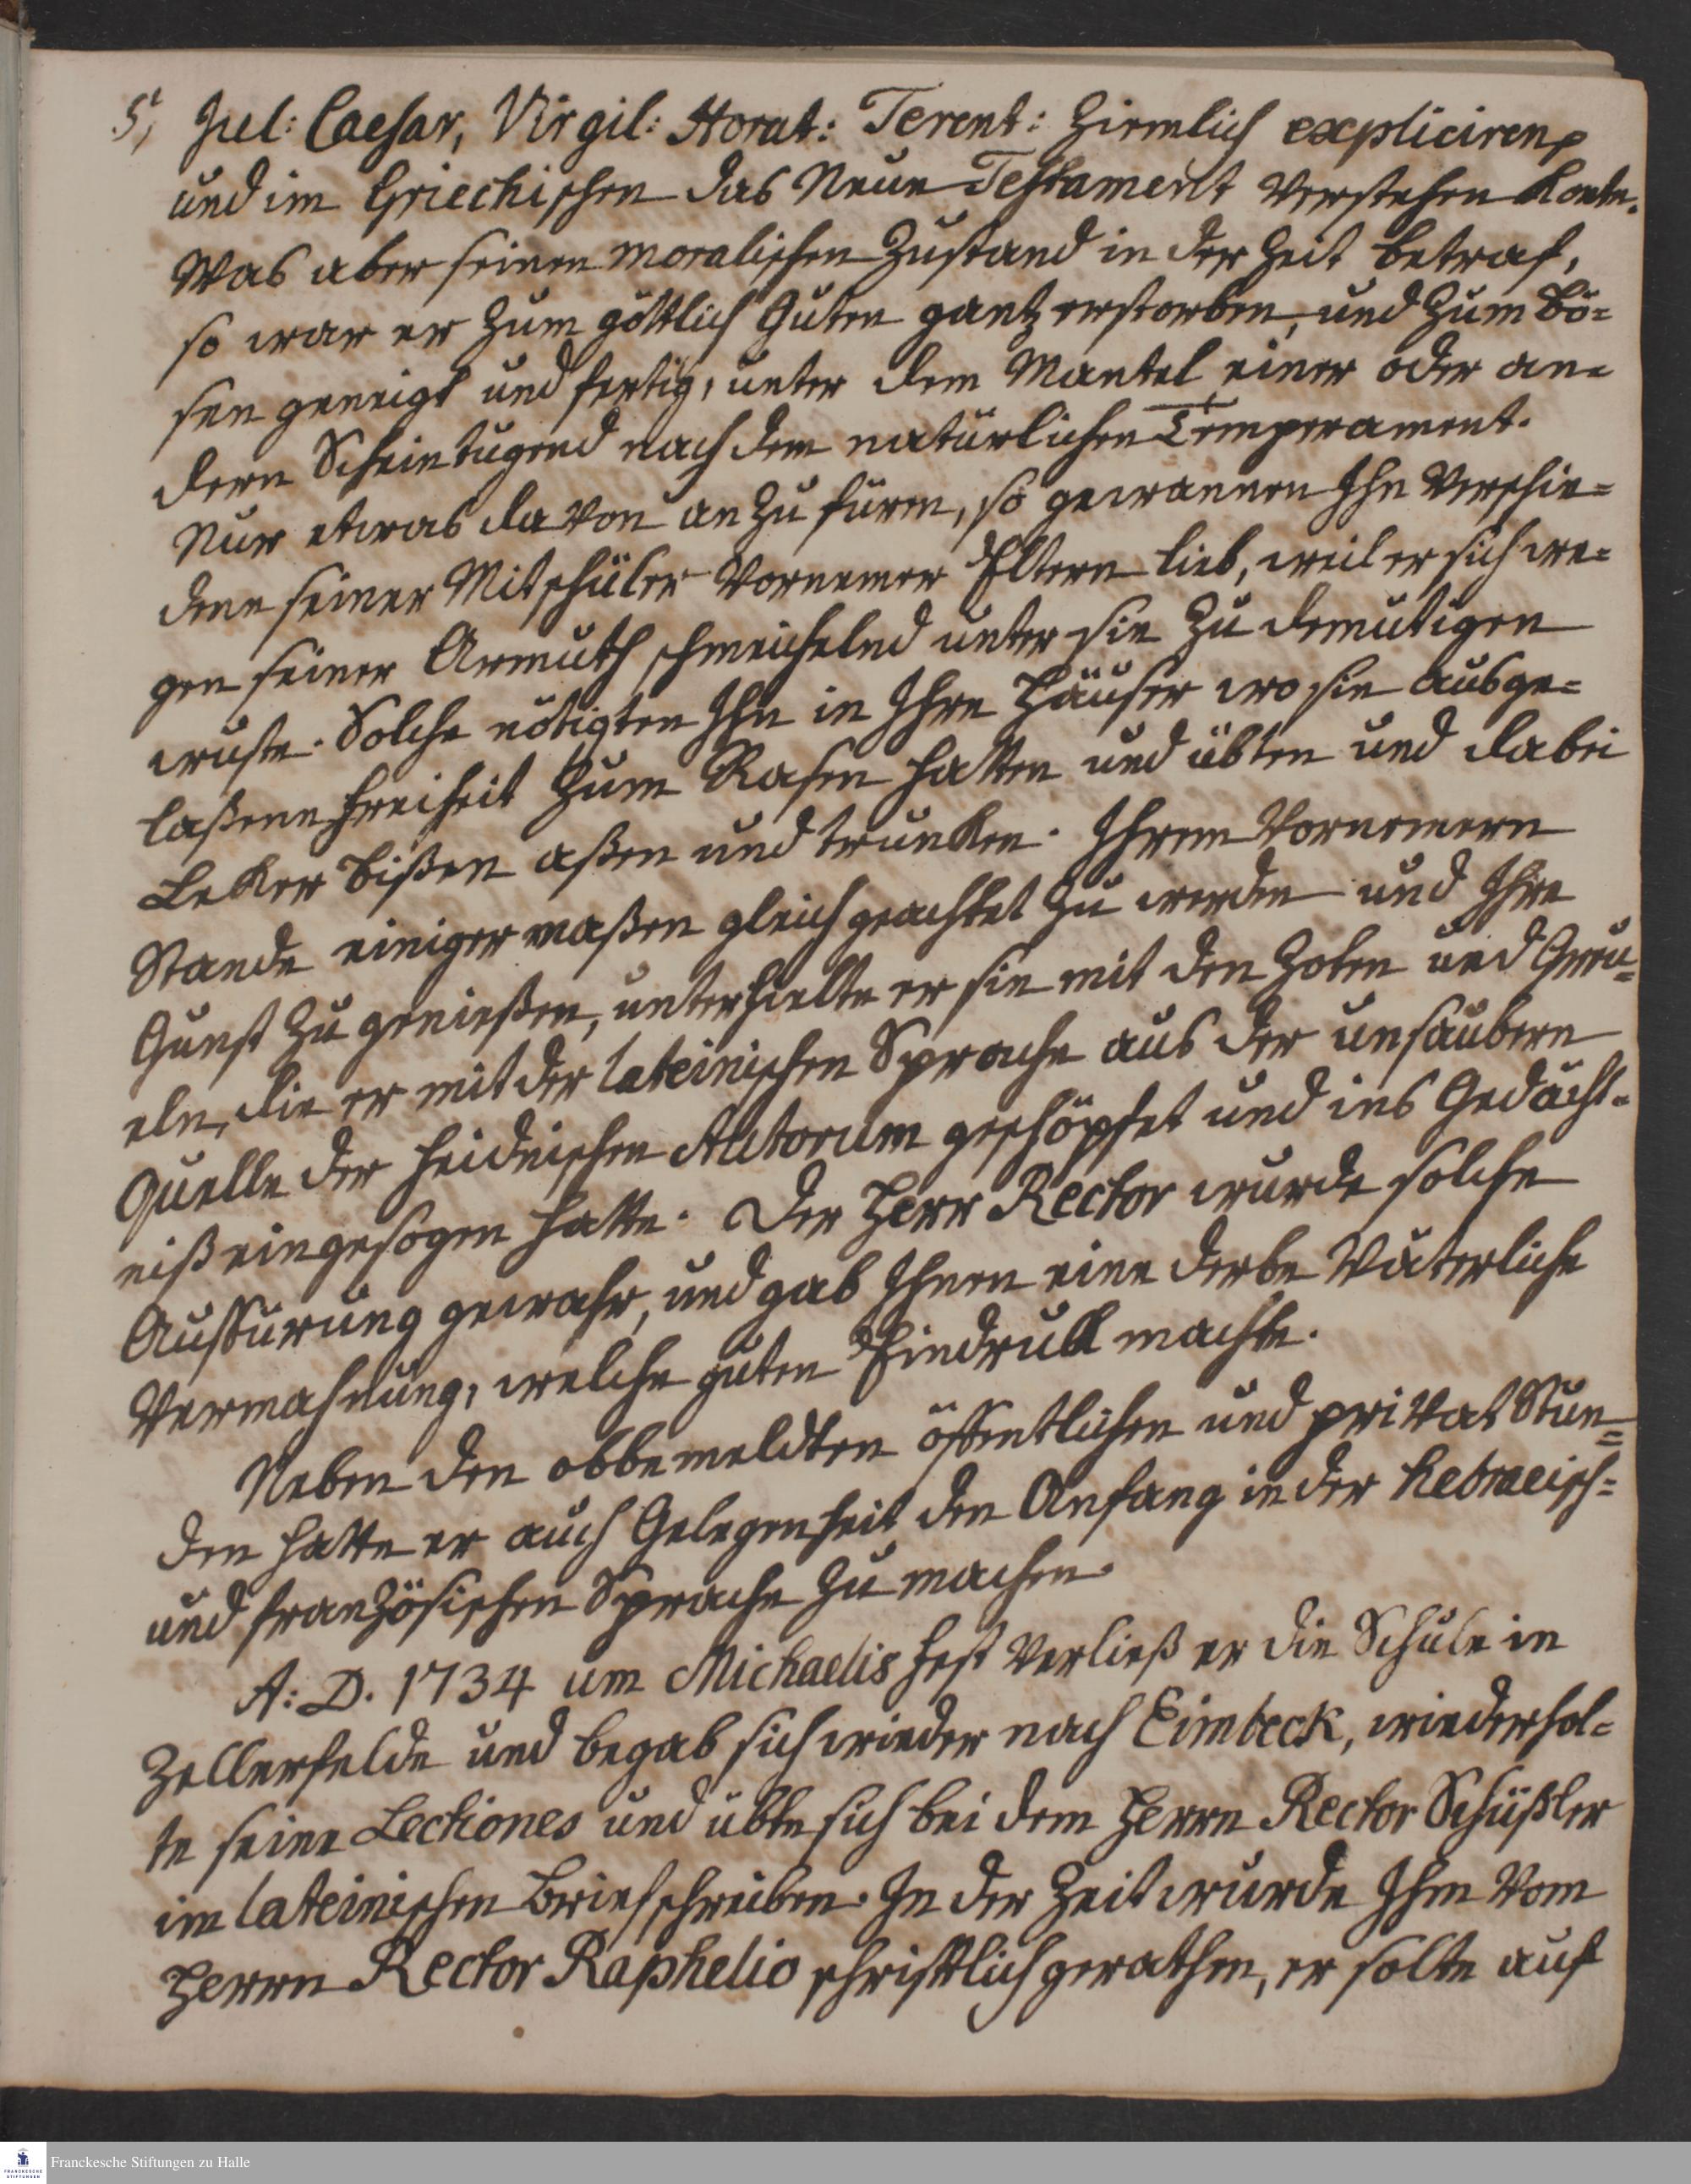 5, Jul: Caesar, Virgil: Horat: Terent: Ziemlich expliciren,
und im Griechischen das Neue Testament verstehen konte.
Was aber seinen moralischen Zustand in der Zeit betraf,
so war er zum göttlich Guten gantz erstorben, und zum Bö=
sen geneigt und fertig, unter dem Mantel einer oder an=
dern Scheintugend nach dem natürlichen Temperament.
Nur etwas davon anzufüren, so gewannen Ihn verschie=
dene seiner Mitschüler vornemer Eltern lieb, weil er sich we=
gen seiner Armuth schmeichelnd unter sie zu demütigen
wuste. Solche nötigten Ihn in Ihre Häuser wo sie ausge=
laßene Freiheit zum Rasen hatten und übten und dabei
Leker bißen aßen und trunken. Ihrem vornemern
Stande einiger maßen gleich geachtet zu werden und Ihre
Gunst zu genießen, unterhielte er sie mit den Zoten und Greu=
eln, die er mit der lateinischen Sprache aus der unsaubern
Quelle der heidnischen Autorum geschöpfet und ins Gedächt=
niß eingesogen hatte. Der Herr Rector wurde solche
Auffürung gewahr, und gab Ihnen eine derbe Väterliche
Vermahnung, welche guten Eindruk machte.
Neben den obbemeldten öffentlichen und privat Stun=
den hatte er auch Gelegenheit den Anfang in der hebraeisch=
und französischen Sprache zu machen.
A: D. 1734 um Michaelis Fest verließ er die Schule in
Zellerfelde und begab sich wieder nach Eimbeck, wiederhol=
te seine Lectiones und übte sich bei dem Herrn Rector Schüßler
im lateinischen Briefschreiben. In der Zeit wurde Ihm vom
Herrn Rector Raphelio schriftlich gerathen, er solte auf
FRANCKESCHE STIFTUNGEN
Franckesche Stiftungen zu Halle